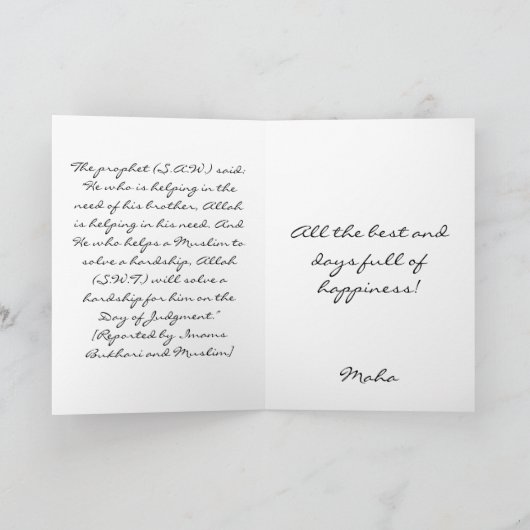 The prophet (S.A.W.) said:
He who is helping in the
need of his brother, Allah
is helping in his need. And
He who helps a Muslim to
solve a hardship, Allah
(S.W.T.) will solve a
hardship for him on the
Day of Judgment."
[Reported by Imams
Bukhari and Muslim]
All the best and
days full of
happiness!
Maha